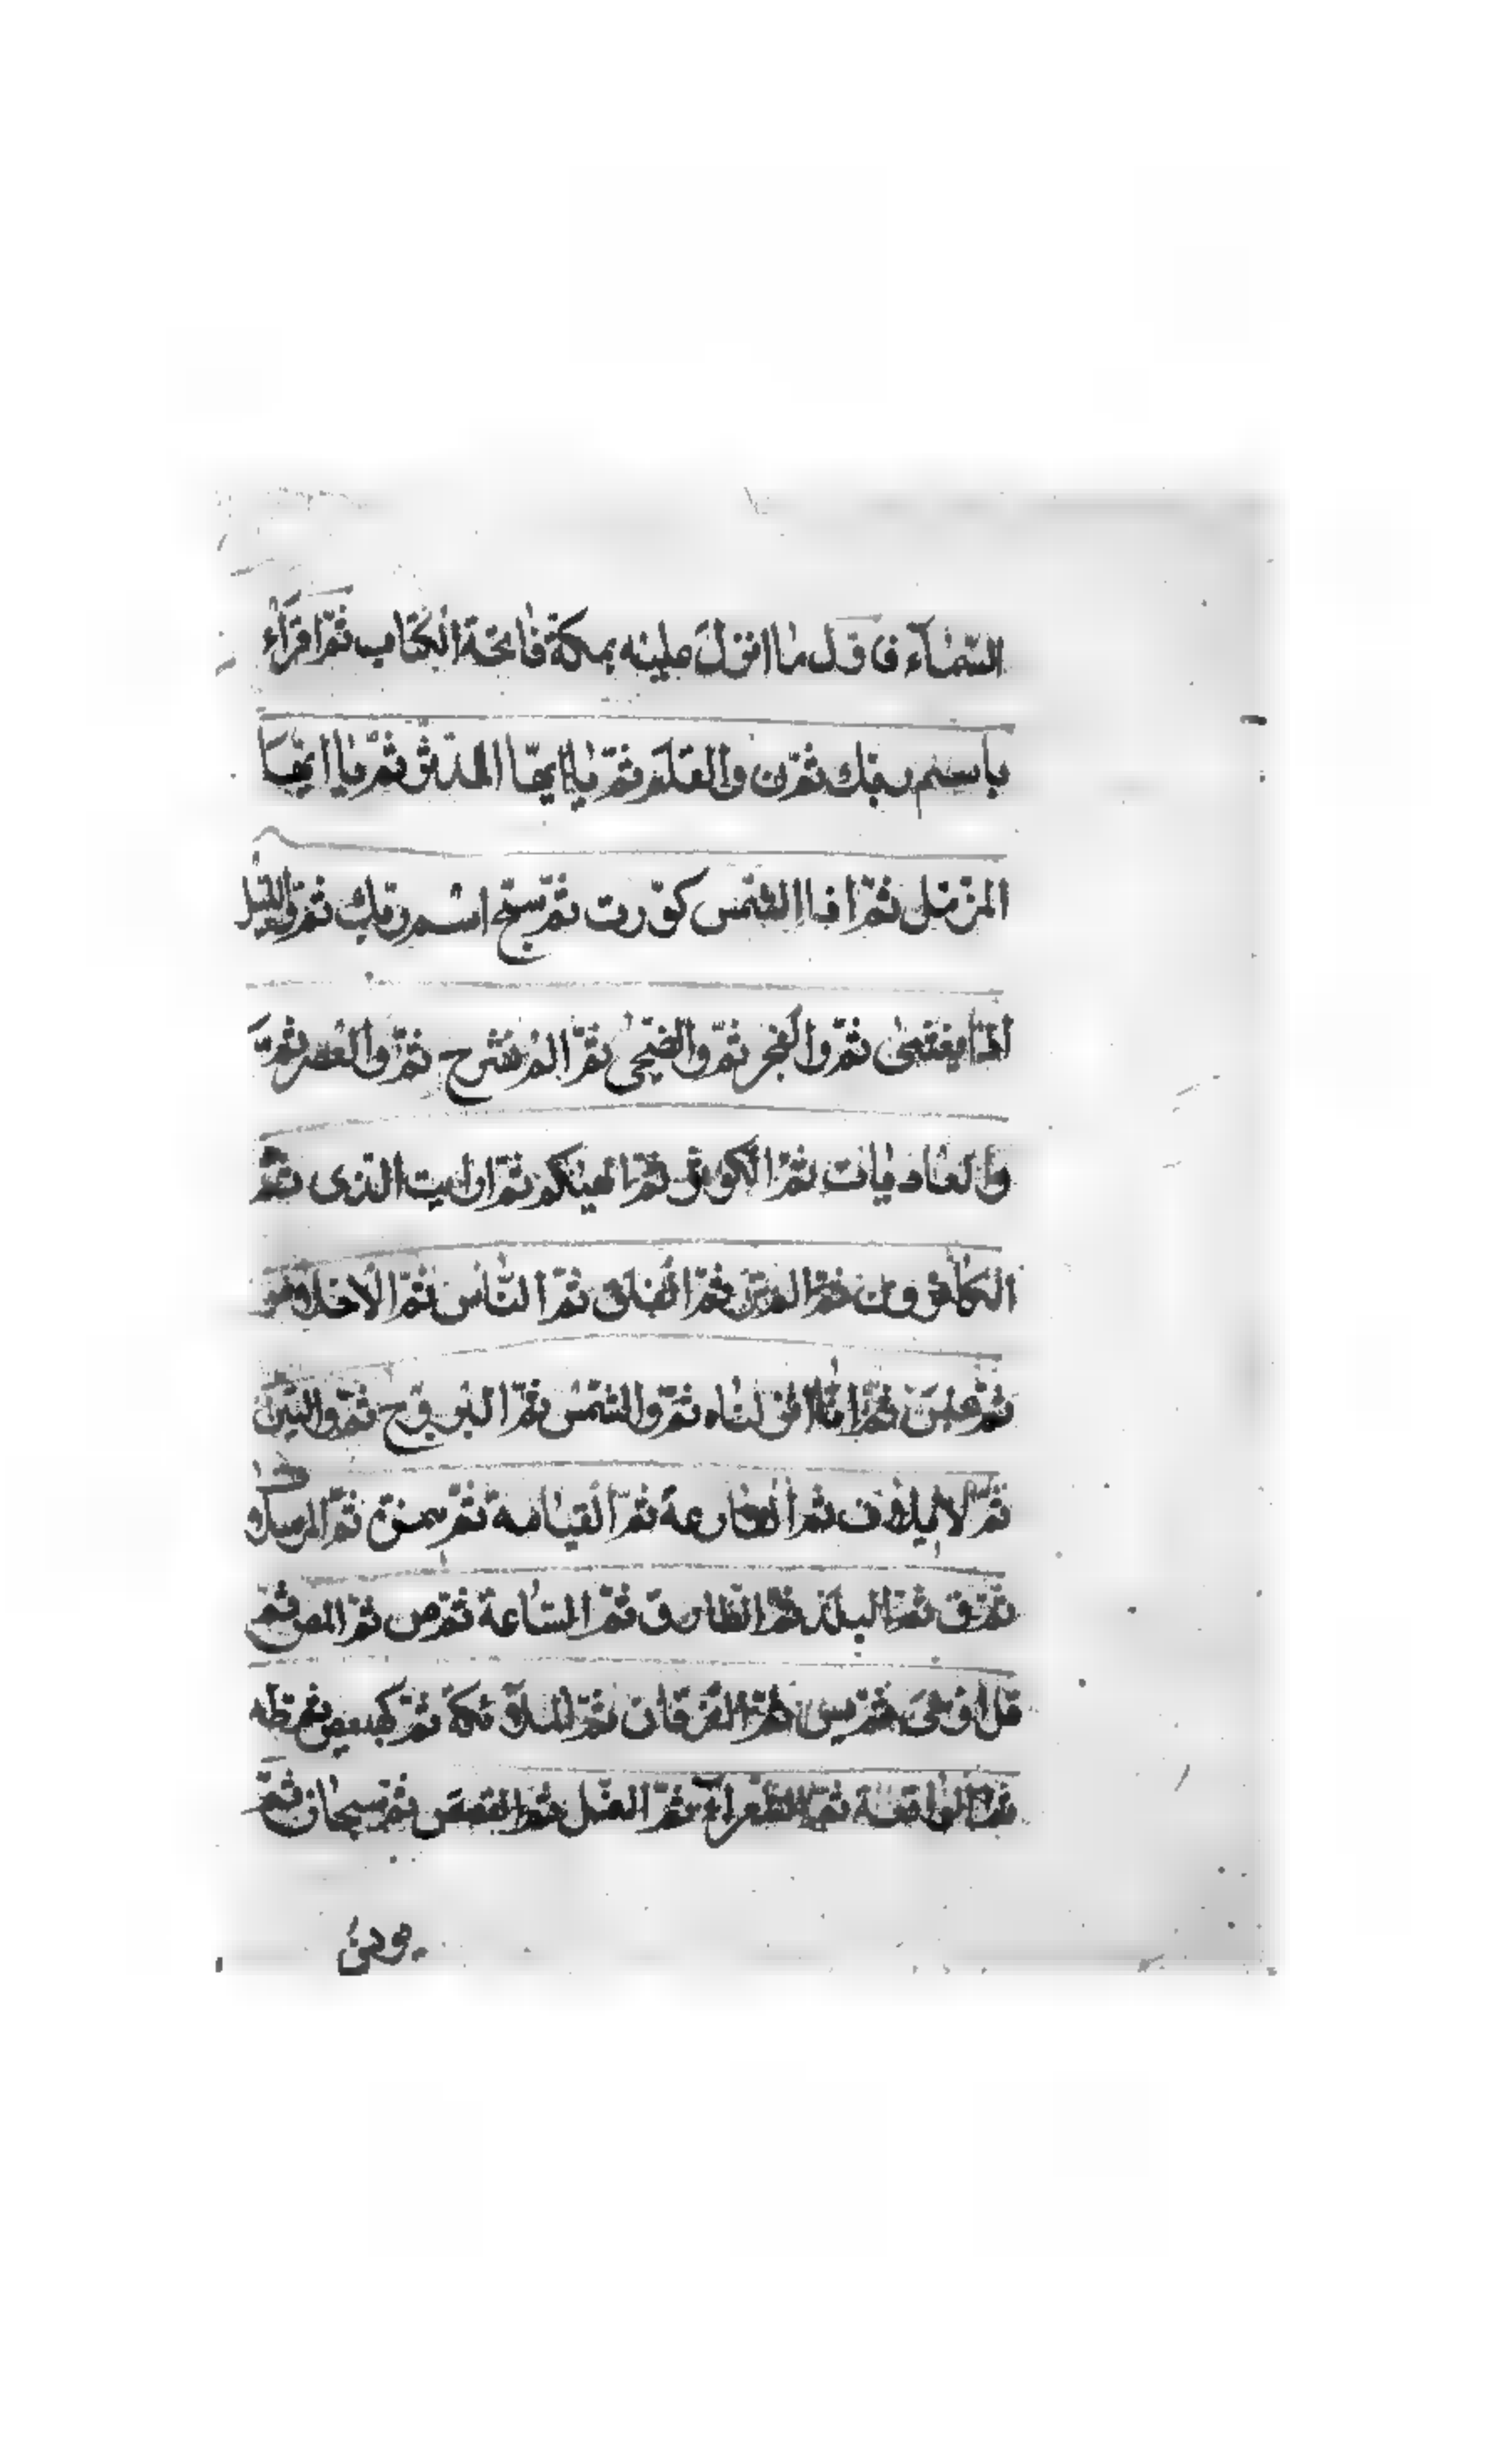 السّماء فاول ما انزل عليه بمكة فاتحة الكتاب ثمّ اقرأ
باسم ربّك ثمّ ن والقلم ثمّ يا ايّها المدّثّر ثمّ يا ايّها
المزّمّل ثمّ اذا الشّمس كوّرت ثمّ سبّح اسم ربّك ثمّ واللّيل
اذا يغشى ثمّ والفجر ثمّ والضّحى ثمّ الم نشرح ثمّ والعصر ثمّ
والعاديات ثمّ الكوثر ثمّ الهيكم ثمّ ارايت الذى ثمّ
الكافرون ثمّ ثمّ الفلق ثمّ النّاس ثمّ الاخلاص
ثمّ عبس ثمّ انّا انزلناه ثمّ والشّمس ثمّ البروج ثمّ والتّين
ثمّ لايلاف ثمّ القارعة ثمّ القيامة ثمّ ثمّ المرسلات
ثمّ ق ثمّ البلد ثمّ الطّارق ثمّ السّاعة ثمّ ص ثمّ المص ثمّ
قل اوحى ثمّ يس ثمّ الفرقان ثمّ الملائكة ثمّ كهيعص ثمّ طه
ثمّ الواقعة ثمّ الشّعراء ثمّ النّمل ثمّ القصص ثمّ سبحان ثمّ
يونس